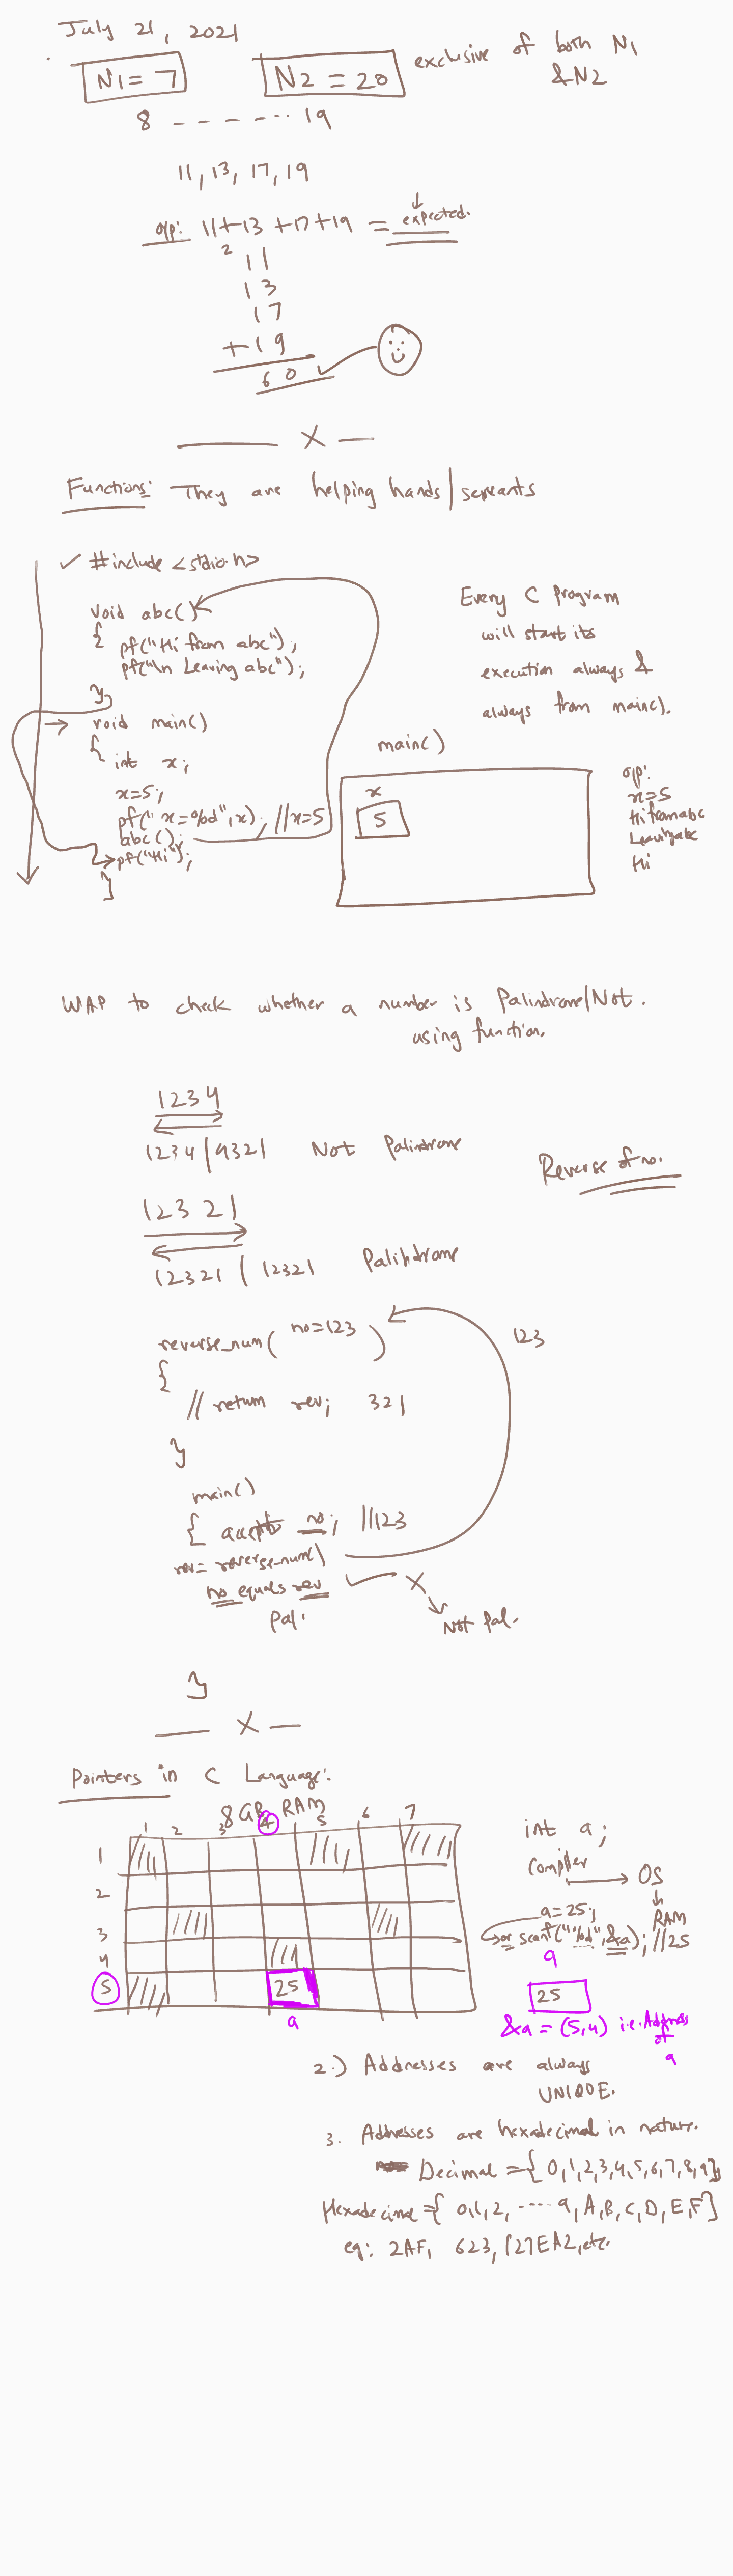 July 21, 2021
N1 = 7 N2 = 20 exclusive of both N1
&N2
8 - - - - - ... 19
11, 13, 17, 19
o/p: 11+13 +17+19 = expected.
2 11
13
17
+19
60
X
Functions: They are helping hands/servants
#include <stdio.h>
void abc()
{ pf("Hi from abc");
pf("\n Leaving abc");
}
void main()
{
int x;
x=5;
pf(" x=%d",x); //x=5
abc();
pf("Hi");
}
Every C program
will start its
execution always &
always from main().
main()
x
5
o/p:
x=5
Hi from abc
Leaving abc
Hi
WAP to check whether a number is Palindrome/Not.
using function.
1234
1234 | 4321 Not Palindrome
Reverse of no.
123 21
12321 | 12321 Palindrome
reverse_num( no=123 )
123
{
// return rev; 321
}
main()
{ accept no; //123
rev= reverse_num()
no equals rev X
Pal. Not Pal.
}
X
Pointers in C Language:
8 GB RAM
1 2 3 4 5 6 7
1
2
3
4
5 25
a
int a;
Compiler OS
a=25; RAM
or scanf("%d",&a); //25
a
25
&a = (5,4) i.e. Address
of
a
2.) Addresses are always
UNIQUE.
3. Addresses are hexadecimal in nature.
Decimal = { 0,1,2,3,4,5,6,7,8,9}
Hexadecimal = { 0,1,2, .... 9, A,B,C,D,E,F}
eg: 2AF, 623, 127EA2, etc.